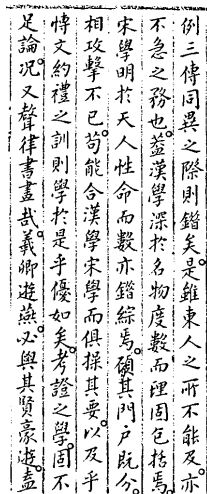 例三傳同異之際則鍇矣。是雖東人之所不能及。亦
不急之務也。蓋漢學深於名物度數。而理固包括焉。
宋學明於天人性命。而數亦鍇綜焉。顧其門戶既分。
相攻擊不已。苟能合漢學宋學而俱操其要。以及乎
博文約禮之訓。則學於是乎優如矣。考證之學。固不
足論。況又聲律書畫哉。羲卿遊燕。必與其賢豪遊。蓋